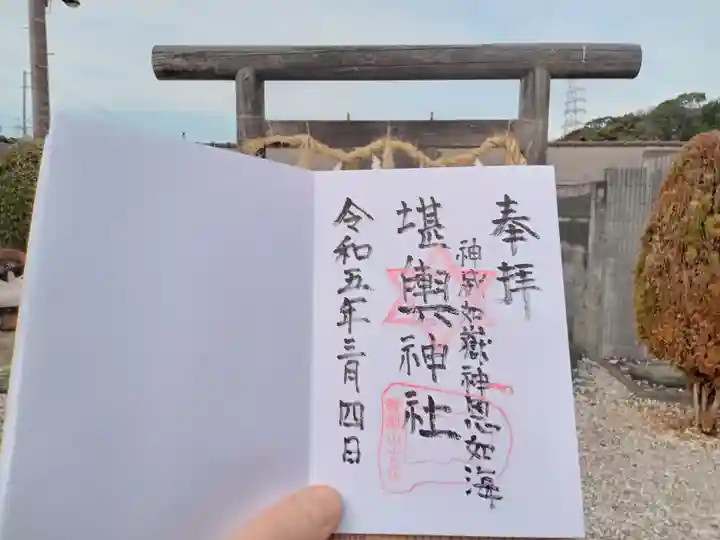 奉拝
神威如嶽神恩如海
堪輿神社
令和五年三月四日